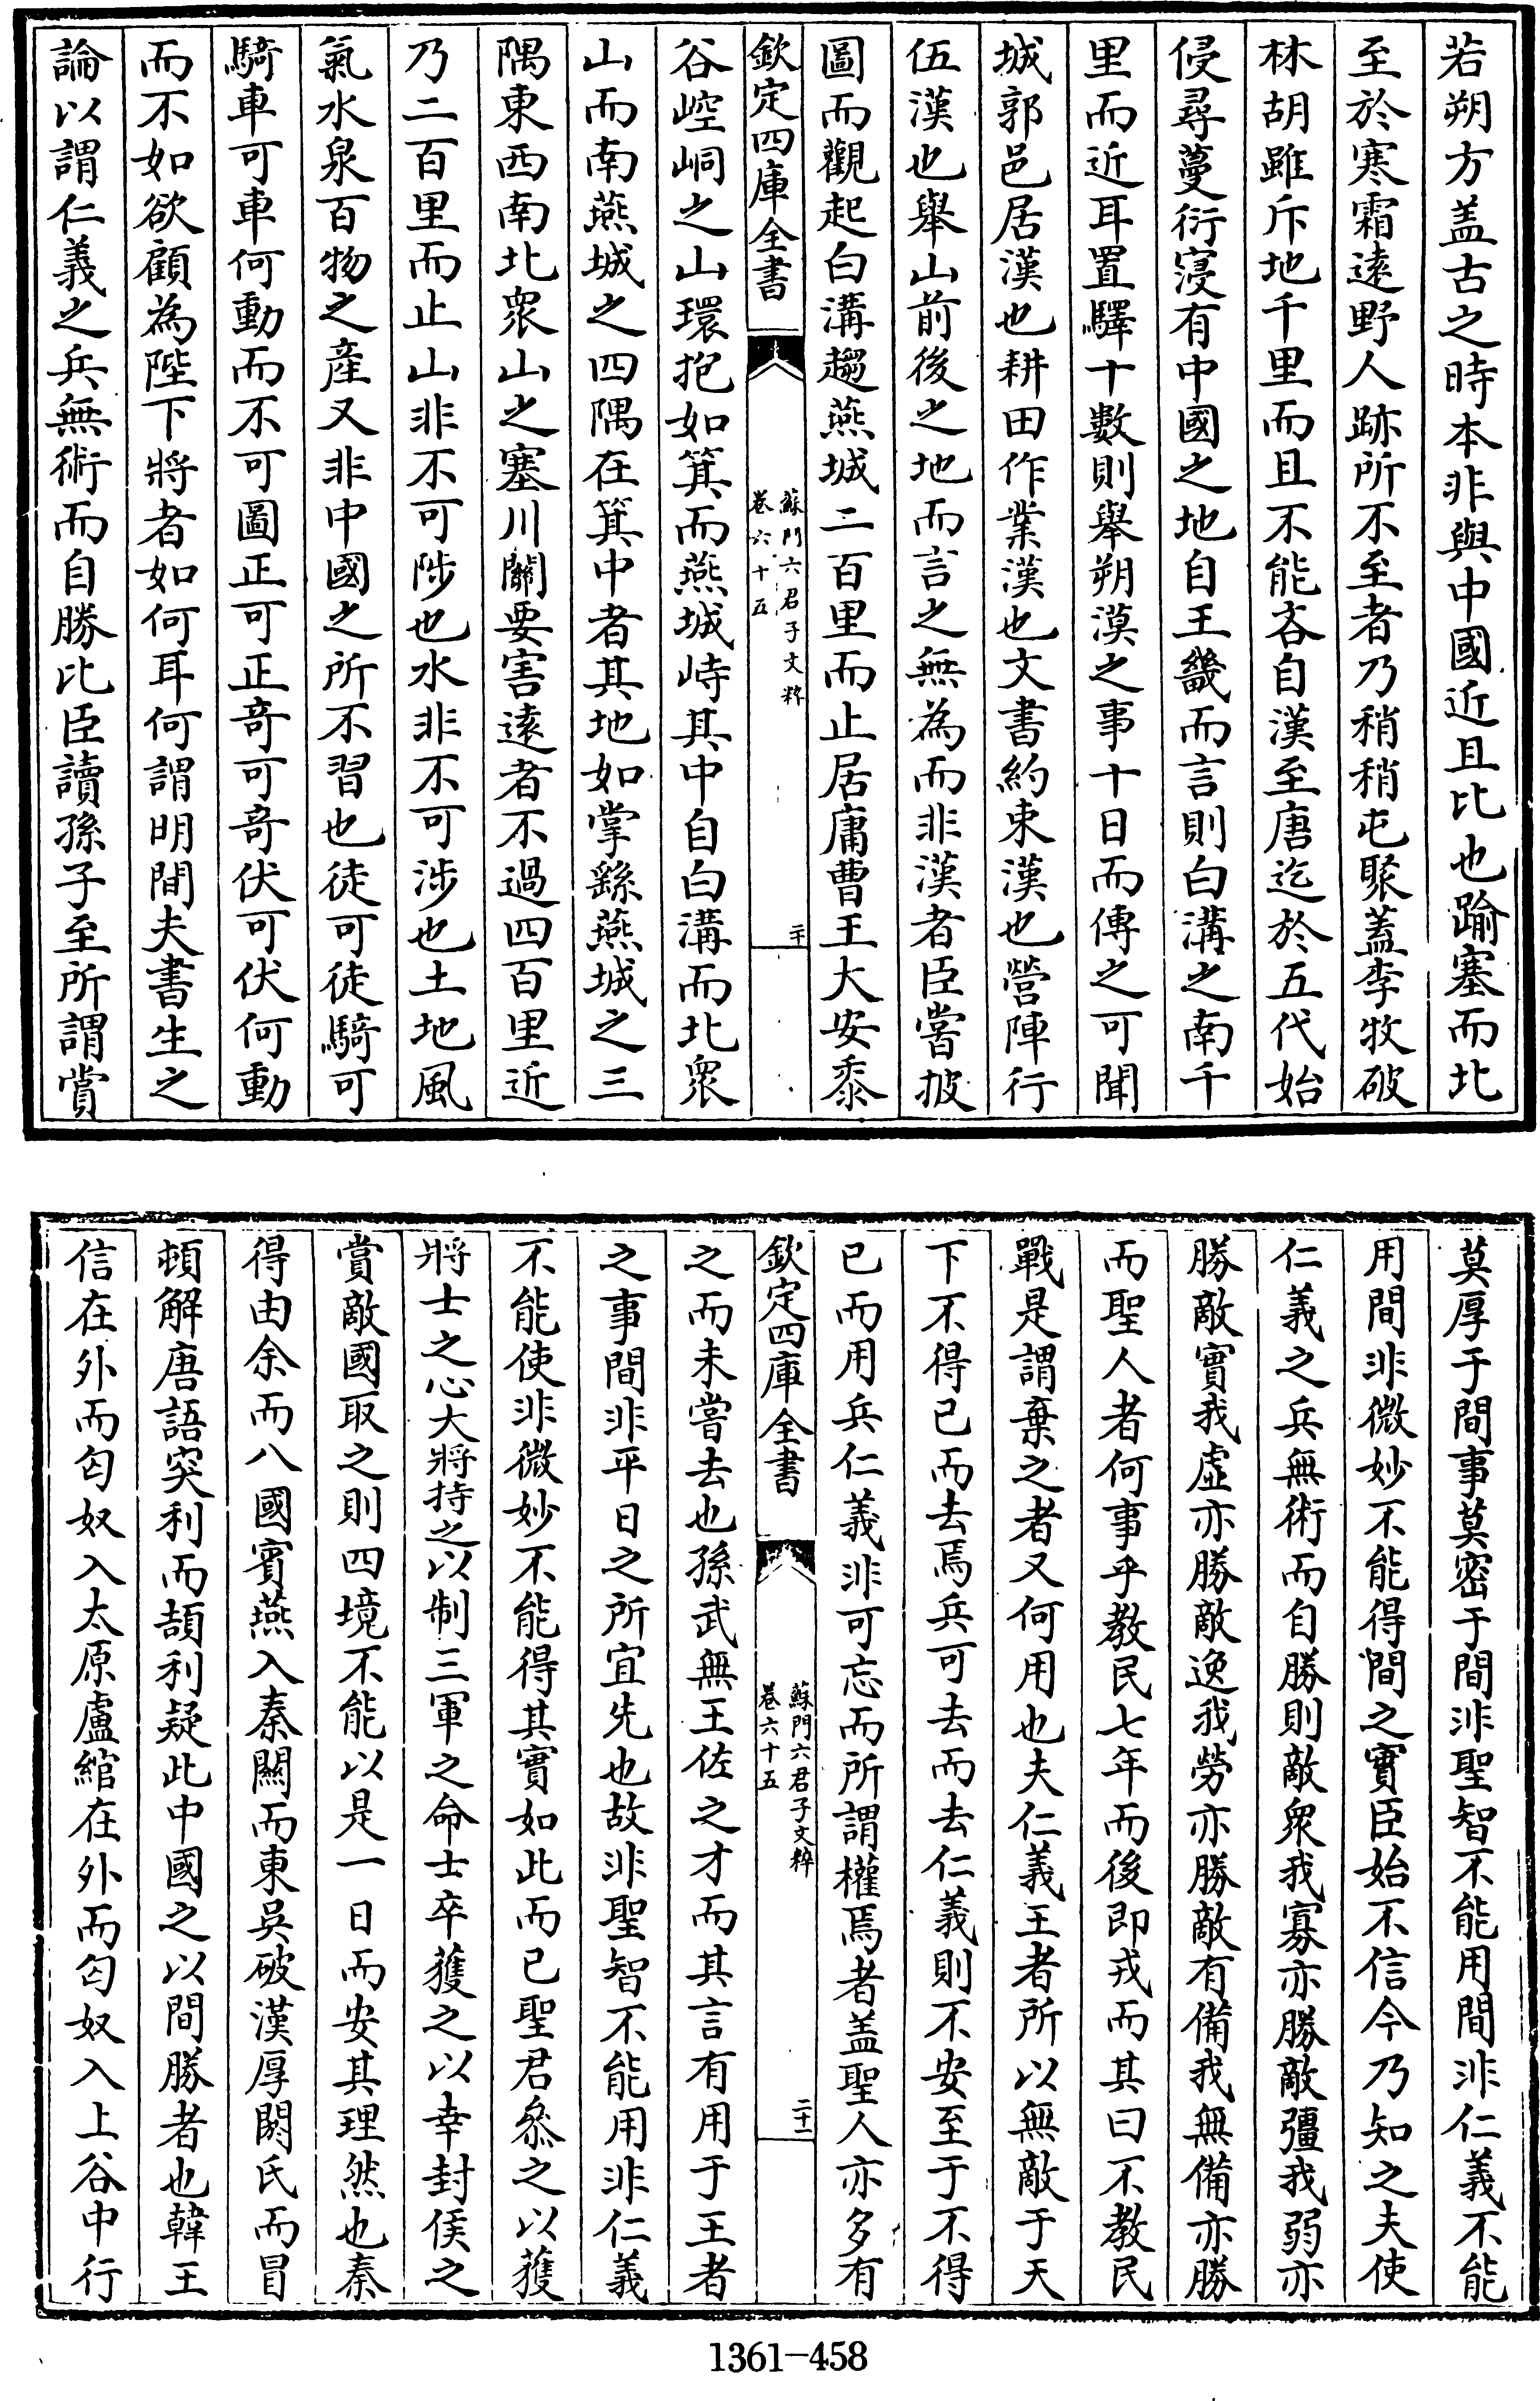 若朔方盖古之時本非與中國近且比也踰塞而北
至於寒霜遠野人跡所不至者乃稍稍屯聚蓋李牧破
林胡雖斥地千里而且不能吝自漢至唐迄於五代始
侵尋蔓衍寖有中國之地自王畿而言則白溝之南千
里而近耳置驛十數則舉朔漠之事十日而傳之可聞
城郭邑居漢也耕田作業漢也文書約束漢也營陣行
伍漢也舉山前後之地而言之無為而非漢者臣嘗披
圖而觀起白溝趨燕城二百里而止居庸曹王大安黍
欽定四庫全書
蘇門六君子文粹
卷六十五
二十
谷崆峒之山環抱如箕而燕城峙其中自白溝而北衆
山而南燕城之四隅在箕中者其地如掌繇燕城之三
隅東西南北衆山之塞川關要害遠者不過四百里近
乃二百里而止山非不可陟也水非不可涉也土地風
氣水泉百物之產又非中國之所不習也徒可徒騎可
騎車可車何動而不可圖正可正奇可奇伏可伏何動
而不如欲顧為陛下將者如何耳何謂明間夫書生之
論以謂仁義之兵無術而自勝比臣讀孫子至所謂賞
莫厚于間事莫密于間非聖智不能用間非仁義不能
用間非微妙不能得間之實臣始不信今乃知之夫使
仁義之兵無術而自勝則敵衆我寡亦勝敵彊我弱亦
勝敵實我虛亦勝敵逸我勞亦勝敵有備我無備亦勝
而聖人者何事乎教民七年而後即戎而其曰不教民
戰是謂棄之者又何用也夫仁義王者所以無敵于天
下不得已而去焉兵可去而去仁義則不安至于不得
已而用兵仁義非可忘而所謂權焉者盖聖人亦多有
欽定四庫全書
蘇門六君子文粹
卷六十五
二十一
之而未嘗去也孫武無王佐之才而其言有用于王者
之事間非平日之所宜先也故非聖智不能用非仁義
不能使非微妙不能得其實如此而已聖君叅之以獲
將士之心大將持之以制三軍之命士卒獲之以幸封侯之
賞敵國取之則四境不能以是一日而安其理然也秦
得由余而八國賓燕入秦闗而東吳破漢厚閼氏而冒
頓解唐語突利而頡利疑此中國之以間勝者也韓王
信在外而匈奴入太原盧綰在外而匈奴入上谷中行
1361-458